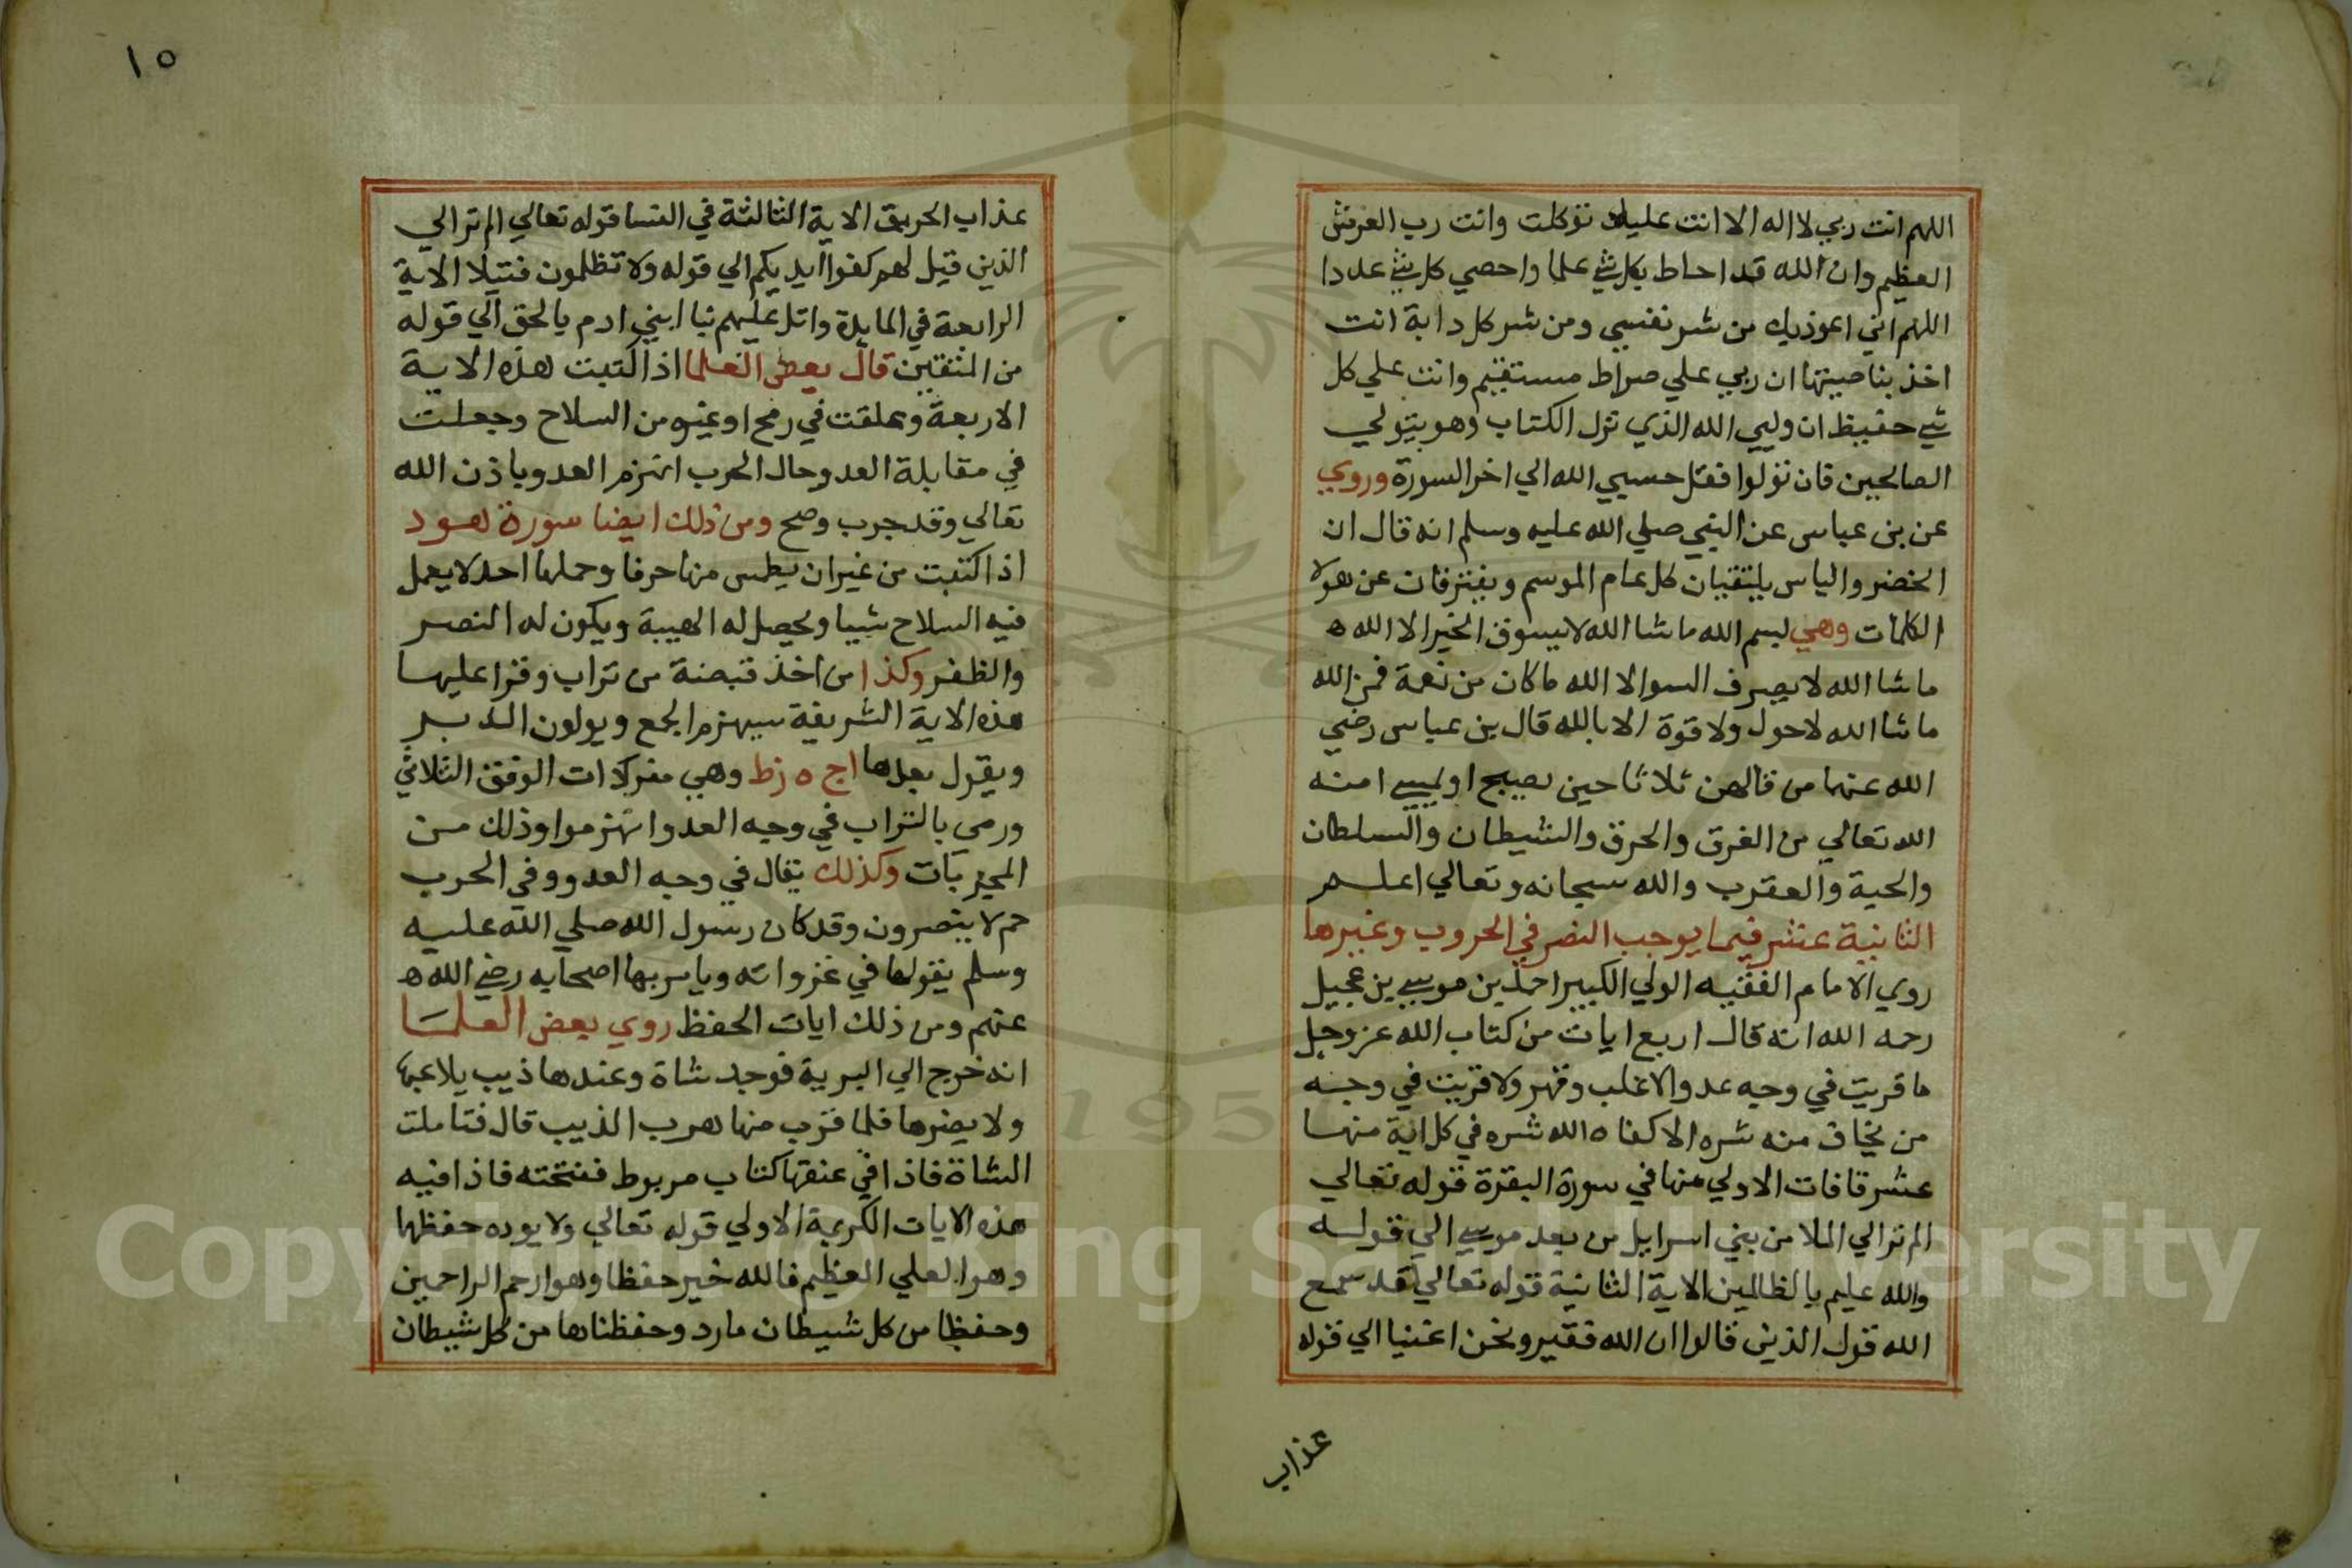 اللهم انت ربي لا اله الا انت عليك توكلت وانت رب العرش
العظيم وان الله قد احاط بكل شي علما واحصي كل شي عددا
اللهم اني اعوذ بك من شر نفسي ومن شر كل دابة انت
اخذ بناصيتها ان ربي علي صراط مستقيم وانت علي كل
شي حفيظ ان وليي الله الذي نزل الكتاب وهو يتولي
الصالحين فان تولوا فقل حسبي الله الي اخر السورة وروي
عن بن عباس عن النبي صلي الله عليه وسلم انه قال ان
الخضر والياس يلتقيان كل عام الموسم ويفترقان عن هولا
الكلمات وهي بسم الله ما شا الله لا يسوق الخير الا الله ه
ما شا الله لا يصرف السوا الا الله ما كان من نعمة فمن الله
ما شا الله لا حول ولا قوة الا بالله قال بن عباس رضي
الله عنهما من قالهن ثلاثا حين يصبح او يمسي امنه
الله تعالي من الغرق والحرق والشيطان والسلطان
والحية والعقرب والله سبحانه وتعالي اعلم
الثانية عشر فيما يوجب النصر في الحروب وغيرها
روي الامام الفقيه الولي الكبير احمد بن موسي بن عجيل
رحمه الله انه قال اربع ايات من كتاب الله عز وجل
ما قريت في وجه عدو الا غلب وقهر ولا قريت في وجه
من يخاف منه شره الا كفاه الله شره في كل اية منها
عشر قافات الاولي منها في سورة البقرة قوله تعالي
الم تر الي الملا من بني اسرايل من بعد موسي الي قوله
والله عليم بالظالمين الاية الثانية قوله تعالي لقد سمع
الله قول الذين قالوا ان الله فقير ونحن اغنيا الي قوله
عذاب
١٥
عذاب الحريق الاية الثالثة في النسا قوله تعالي الم تر الي
الذين قيل لهم كفوا ايديكم الي قوله ولا تظلمون فتيلا الاية
الرابعة في المايدة واتل عليهم نبا ابني ادم بالحق الي قوله
من المتقين قال بعض العلما اذا كتبت هذه الاية
الاربعة وعلقت في رمح او غيره من السلاح وجعلت
في مقابلة العدو حال الحرب انهزم العدو باذن الله
تعالي وقد جرب وصح ومن ذلك ايضا سورة هود
اذا كتبت من غير ان يطمس منها حرفا وحملها احد لا يعمل
فيه السلاح شيا ويحصل له الهيبة ويكون له النصر
والظفر وكذا من اخذ قبضة من تراب وقرا عليها
هذه الاية الشريفة سيهزم الجمع ويولون الدبر
ويقول بعدها اج ه زط وهي مفردات الوفق الثلاثي
ورمي بالتراب في وجه العدو انهزموا وذلك من
المجربات وكذلك يقال في وجه العدو وفي الحرب
حم لا ينصرون وقد كان رسول الله صلي الله عليه
وسلم يقولها في غزواته ويامر بها اصحابه رضي الله ه
عنهم ومن ذلك ايات الحفظ روي بعض العلما
انه خرج الي البرية فوجد شاة وعندها ذيب يلاعبها
ولا يضرها فلما قرب منها هرب الذيب قال فتاملت
الشاة فاذا في عنقها كتاب مربوط ففتحته فاذا فيه
هذه الايات الكريمة الاولي قوله تعالي ولا يوده حفظهما
وهو العلي العظيم فالله خير حفظا وهو ارحم الراحمين
وحفظا من كل شيطان مارد وحفظناها من كل شيطان
Copyright © King Saud University
1957